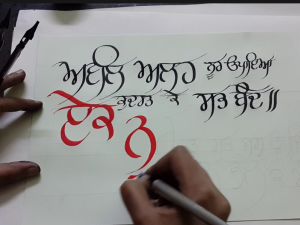 ਅਵਲਿ ਅਲਹ ਨੂਰੁ ਉਪਾਇਆ
ਕੁਦਰਤ ਕੇ ਸਭ ਬੰਦੇ॥
ਏਕ ਨੂ